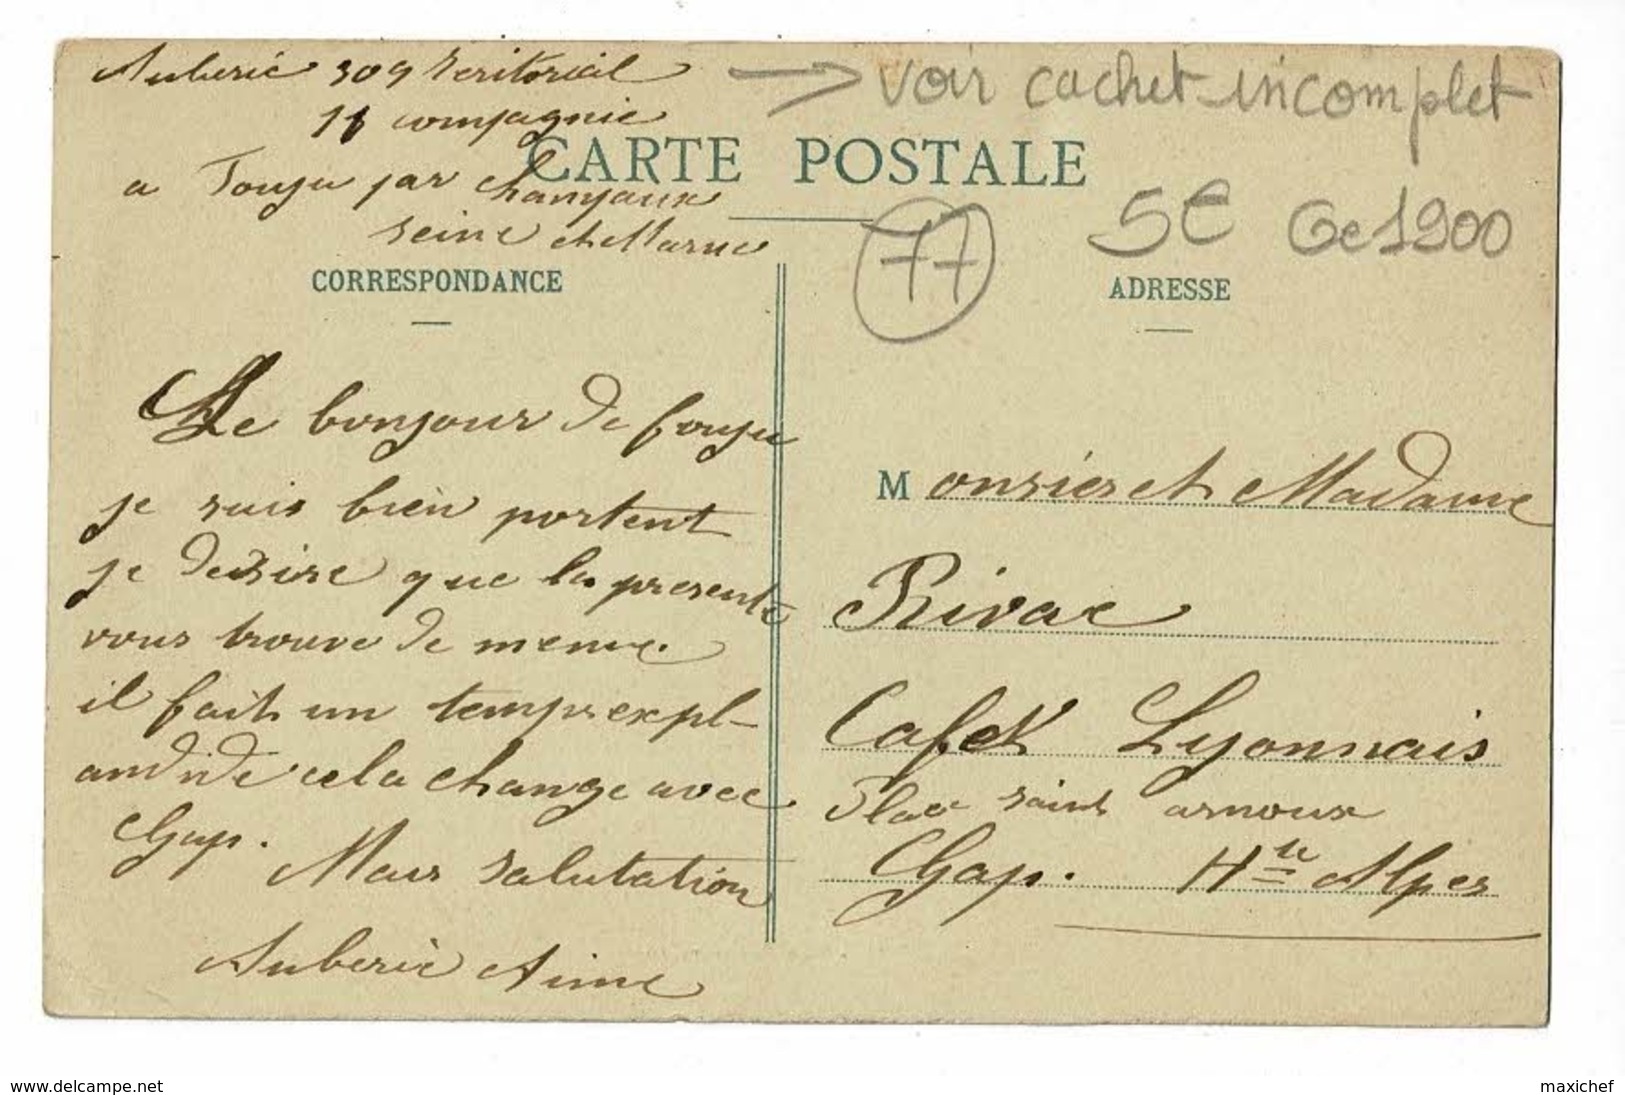 Auberic 309 Teritorial
11 compagnie
a Fouju par Champaux
Seine et Marne
→ voir cachet incomplet
CARTE POSTALE
77
5€
Ge 1900
CORRESPONDANCE
Le bonjour de fouju
je suis bien portent
je desire que la presente
vous trouve de meme.
il fait un temp expl-
andide cela change avec
Gap.
Mais Salutation
Auberic Aime
ADRESSE
Monsier et Madame
Rivac
Cafet Lyonnais
Place saint arnoux
Gap. Hte Alpes
www.delcampe.net
maxichef